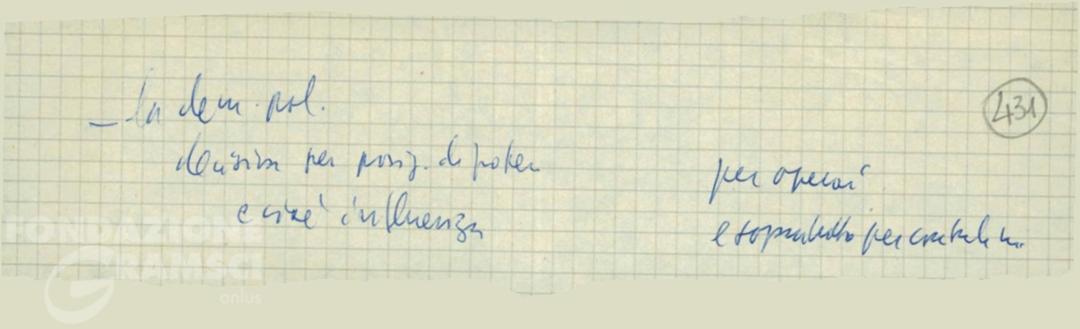 – la dem. pol.
431
decisiva per posiz. di potere
per operai
e cioè influenza
e soprattutto per
FONDAZIONE
GRAMSCI
onlus